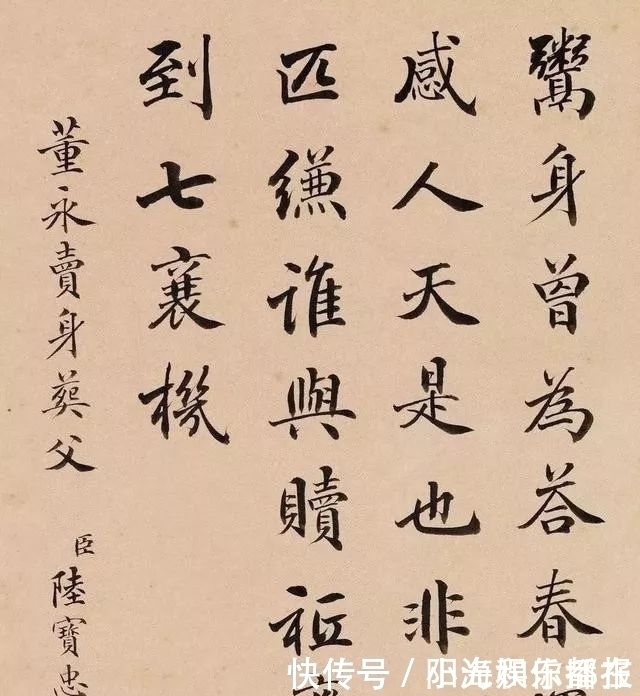 鬻身曾為答春
感人天是也非
匹縑誰與贖
到七襄機
董永賣身葬父 臣陸寶忠
快传号/阳